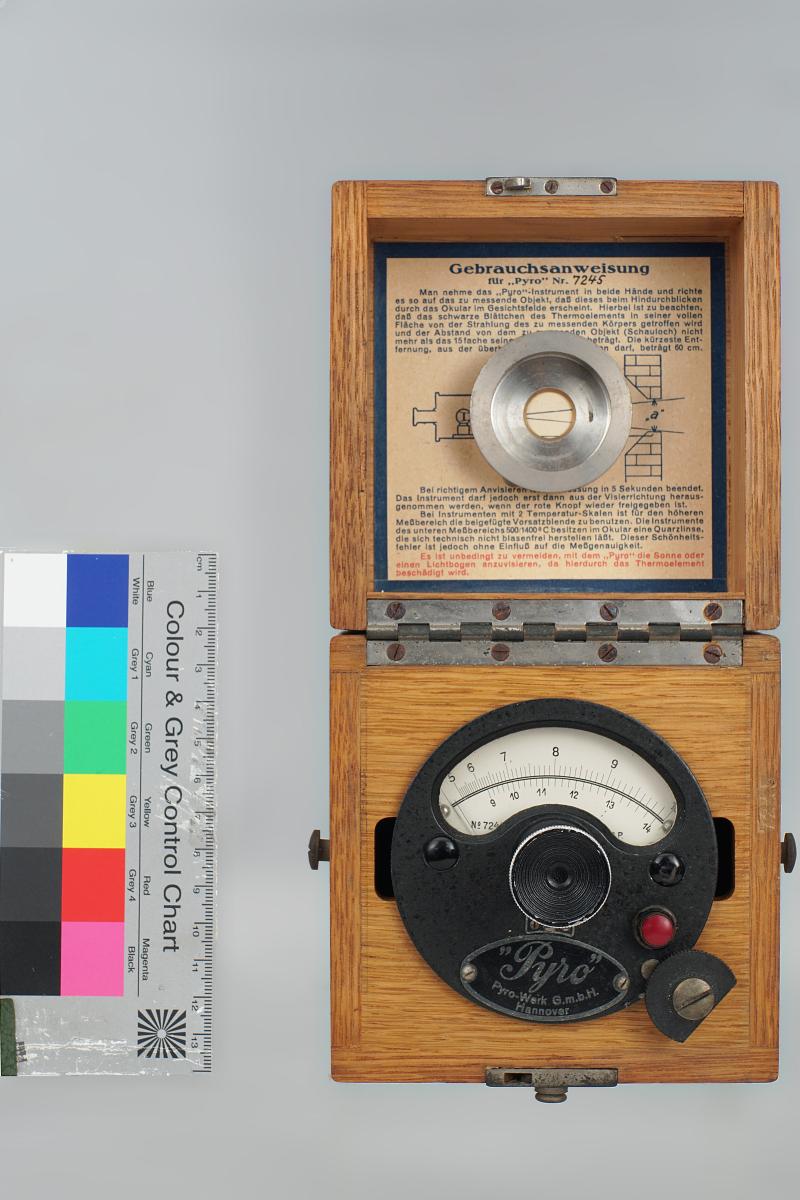 Gebrauchsanweisung
für „Pyro" Nr. 7245
Man nehme das „Pyro"-Instrument in beide Hände und richte
es so auf das zu messende Objekt, daß dieses beim Hindurchblicken
durch das Okular im Gesichtsfelde erscheint. Hierbei ist zu beachten,
daß das schwarze Blättchen des Thermoelements in seiner vollen
Fläche von der Strahlung des zu messenden Körpers getroffen wird
und der Abstand von dem zu messenden Objekt (Schauloch) nicht
mehr als das 15fache beträgt. Die kürzeste Ent-
fernung, aus der darf, beträgt 60 cm.
„a"
Bei richtigem Anvisieren in 5 Sekunden beendet.
Das Instrument darf jedoch erst dann aus der Visierrichtung heraus-
genommen werden, wenn der rote Knopf wieder freigegeben ist.
Bei Instrumenten mit 2 Temperatur-Skalen ist für den höheren
Meßbereich die beigefügte Vorsatzblende zu benutzen. Die Instrumente
des unteren Meßbereichs 500/1400°C besitzen im Okular eine Quarzlinse,
die sich technisch nicht blasenfrei herstellen läßt. Dieser Schönheits-
fehler ist jedoch ohne Einfluß auf die Meßgenauigkeit.
Es ist unbedingt zu vermeiden, mit dem „Pyro" die Sonne oder
einen Lichtbogen anzuvisieren, da hierdurch das Thermoelement
beschädigt wird.
5 6 7 8 9
9 10 11 12 13 14
Nº 724
P
"Pyro"
Pyro-Werk G.m.b.H.
Hannover
Colour & Grey Control Chart
Blue Cyan Green Yellow Red Magenta
White Grey 1 Grey 2 Grey 3 Grey 4 Black
cm 1 2 3 4 5 6 7 8 9 10 11 12 13